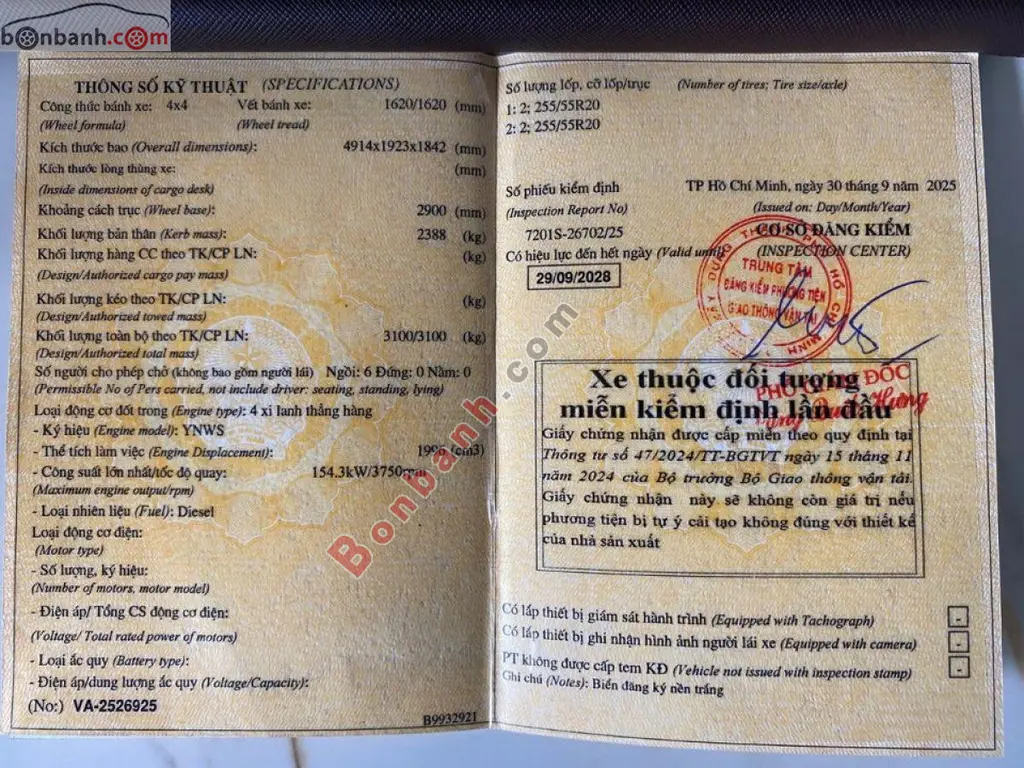 bonbanh.com
THÔNG SỐ KỸ THUẬT (SPECIFICATIONS)
Công thức bánh xe: 4x4 Vết bánh xe: 1620/1620 (mm)
(Wheel formula) (Wheel tread)
Kích thước bao (Overall dimensions): 4914x1923x1842 (mm)
Kích thước lòng thùng xe: (mm)
(Inside dimensions of cargo desk)
Khoảng cách trục (Wheel base): 2900 (mm)
Khối lượng bản thân (Kerb mass): 2388 (kg)
Khối lượng hàng CC theo TK/CP LN: (kg)
(Design/Authorized cargo pay mass)
Khối lượng kéo theo TK/CP LN: (kg)
(Design/Authorized towed mass)
Khối lượng toàn bộ theo TK/CP LN: 3100/3100 (kg)
(Design/Authorized total mass)
Số người cho phép chở (không bao gồm người lái) Ngồi: 6 Đứng: 0 Nằm: 0
(Permissible No of Pers carried, not include driver: seating, standing, lying)
Loại động cơ đốt trong (Engine type): 4 xi lanh thẳng hàng
- Ký hiệu (Engine model): YNWS
- Thể tích làm việc (Engine Displacement): 1996 (cm3)
- Công suất lớn nhất/tốc độ quay: 154.3kW/3750rpm
(Maximum engine output/rpm)
- Loại nhiên liệu (Fuel): Diesel
Loại động cơ điện:
(Motor type)
- Số lượng, ký hiệu:
(Number of motors, motor model)
- Điện áp/ Tổng CS động cơ điện:
(Voltage/ Total rated power of motors)
- Loại ắc quy (Battery type):
- Điện áp/dung lượng ắc quy (Voltage/Capacity):
(No:) VA-2526925
B9932921
Số lượng lốp, cỡ lốp/trục (Number of tires; Tire size/axle)
1: 2; 255/55R20
2: 2; 255/55R20
Số phiếu kiểm định TP Hồ Chí Minh, ngày 30 tháng 9 năm 2025
(Inspection Report No) (Issued on: Day/Month/Year)
7201S-26702/25 CƠ SỞ ĐĂNG KIỂM
Có hiệu lực đến hết ngày (Valid until) (INSPECTION CENTER)
29/09/2028
TRUNG TÂM
ĐĂNG KIỂM PHƯƠNG TIỆN
GIAO THÔNG VẬN TẢI
PHÓ GIÁM ĐỐC
Xe thuộc đối tượng
miễn kiểm định lần đầu
Giấy chứng nhận được cấp miễn theo quy định tại
Thông tư số 47/2024/TT-BGTVT ngày 15 tháng 11
năm 2024 của Bộ trưởng Bộ Giao thông vận tải.
Giấy chứng nhận này sẽ không còn giá trị nếu
phương tiện bị tự ý cải tạo không đúng với thiết kế
của nhà sản xuất
Có lắp thiết bị giám sát hành trình (Equipped with Tachograph) -
Có lắp thiết bị ghi nhận hình ảnh người lái xe (Equipped with camera) -
PT không được cấp tem KĐ (Vehicle not issued with inspection stamp) -
Ghi chú (Notes): Biển đăng ký nền trắng
Bonbanh.com